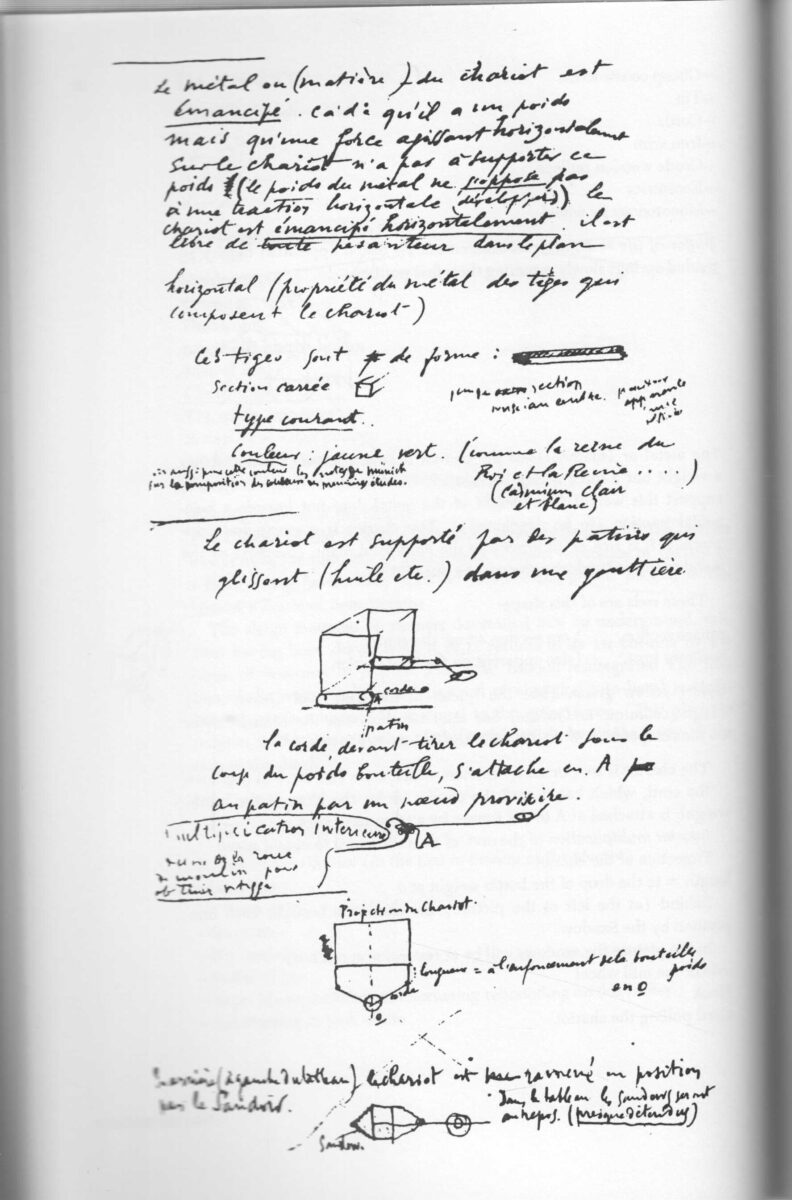 Le métal ou (matière) du chariot est
émancipé. Càd: qu'il a un poids
mais qu'une force agissant horizontalement
sur le chariot n'a pas à supporter ce
poids (le poids du métal ne s'oppose pas
à une traction horizontale développée) le
chariot est émancipé horizontalement. il est
libre de toute pesanteur dans le plan
horizontal (propriété du métal des tiges qui
composent le chariot)
Ces tiges sont de forme :
Section carrée
section
type courant.
Couleur : jaune vert. (comme la reine du
Roi et la Reine ....)
sur la composition des couleurs premières études.
(Cadmium clair
et blanc)
Le chariot est supporté par des patins qui
glissent (huile etc.) dans une gouttière
corde
A
patin
la corde devant tirer le chariot sous le
coup du poids bouteille, s'attache en A
au patin par un nœud provisoire.
multiplication intérieure
A
roue
de moulin pour
obtenir
Projection du Chariot.
longueur = à l'enfoncement de la bouteille
poids
en O
corde
O
(à gauche du tableau) le chariot est ramené en position
par le Sandow.
Dans le tableau les Sandows seront
au repos. (presque détendus)
Sandow.